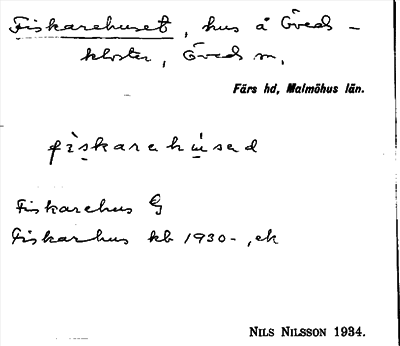 Fiskarehuset, hus å Öveds-
kloster, Öveds sn,
Färs hd, Malmöhus län.
fìskarehúsəd
Fiskarehus G
Fiskarhus kb 1930-, ek
NILS NILSSON 1934.